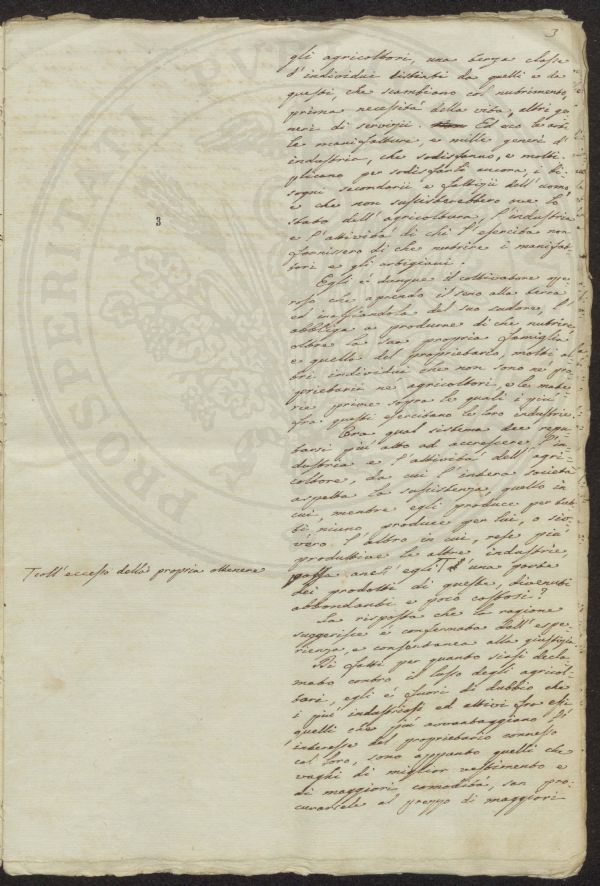 3
gli agricoltori, una terza classe
d'individui distinti da quelli e da
questi, che scambiano col nutrimento,
prima necessità della vita, altri ge
neri di servizii. Ed ecco le arti
le manifatture, e mille generi d'
industria, che sodisfanno, e molti-
plicano per sodisfarli ancora, i bi-
sogni secondarii e fattizii dell'uomo,
e che non sussisterebbero ove lo
stato dell'agricoltura, l'industria
e l'attività di chi l'esercita non
fornissero di che nutrire i manifat
tori e gli artigiani.
Egli è dunque il coltivatore
che aprendo il seno alla terra
ed inaffiandola del suo sudore, l'
obbliga a produrne di che nutrire,
oltre la sua propria famiglia
e quella del proprietario, molti al
tri individui che non sono ne pro
prietarii ne agricoltori, e le mate
rie prime sopra le quali i più
fra questi esercitano le loro industrie.
Ora qual sistema dee repu
tarsi più atto ad accrescere l'in
dustria e l'attività dell'agri-
coltore, da cui l'intera società
aspetta la sussistenza, quello in
cui, mentre egli produce per tut
ti, niuno produce per lui, o sia
vero l'altro in cui, rese più
produttive le altre industrie,
possa anch'egli T una parte
T coll'eccesso della propria ottenere
dei prodotti di queste, divenuti
abbondanti e poco costosi?
La risposta che la ragione
suggerisce è confermata dall'espe-
rienza, e consentanea alla giustizia
Di fatti per quanto siasi decla
mato contro il lusso degli agricol-
tori, egli è fuori di dubbio che
i più industriosi ed attivi fra essi
quelli che più avvantaggiano l'
interesse del proprietario connesso
col loro, sono appunto quelli che
vaghi di miglior vestimento e
di maggiori comodità, san pro
curarsele al prezzo di maggiori
3
PROSPERITATI PVB